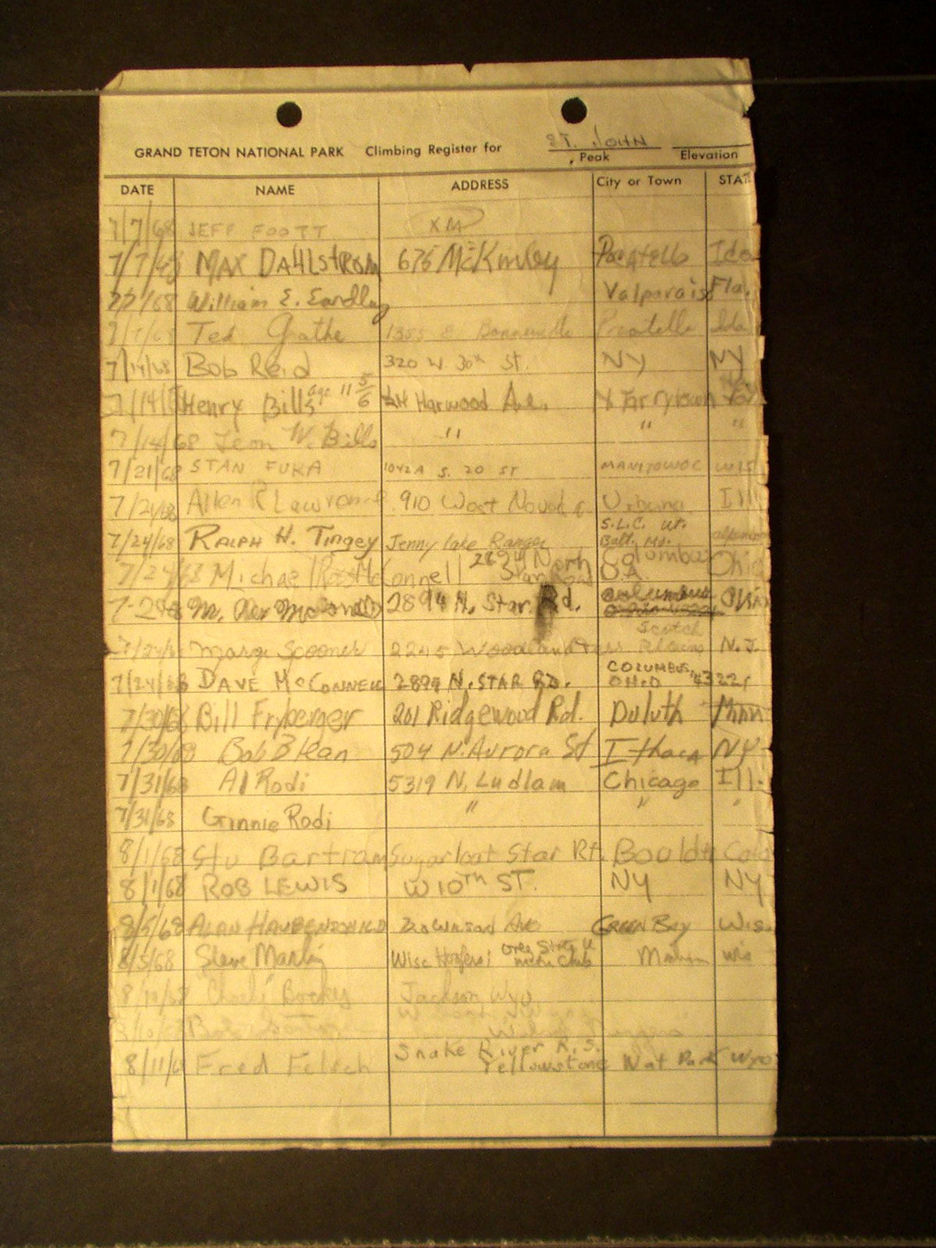 ST. JOHN
GRAND TETON NATIONAL PARK Climbing Register for Peak Elevation
DATE NAME ADDRESS City or Town STAT
7/7/68 JEFF FOOTT
7/7/68 MAX DAHLSTROM 675 McKinley Pocatello Ida
7/7/68 William E. Eardley Valparais Fla.
7/7/68 Ted Gathe 1355 E Bonneville Pocatello Ida
7/14/68 Bob Reid 320 W. 30th St. NY NY
7/14/68 Henry Bills age 11 5/6 Harwood Ave. Tarrytown
7/14/68 Leon W. Bills " " "
7/21/68 STAN FUKA 1042A S. 20 ST MANITOWOC WIS
7/24/68 Allen R Lawrence 910 West Nevada Urbana Ill
7/24/68 RALPH H. Tingey Jenny lake Ranger S.L.C. Ut. Balt. Md.
7/24/68 Michael Ross McConnell 2894 North Star Road Columbus Ohio
7-24-68 M. 2894 N. Star Rd. columbus Ohio
7/24/68 Marge Spooner 2245 Woodland Scotch Plains N.J.
7/24/68 DAVE McCONNELL 2894 N. STAR RD. COLUMBUS, OHIO 43221
7/30/68 Bill Fryberger 201 Ridgewood Rd. Duluth Minn
7/30/68 Bob Blean 504 N. Aurora St Ithaca NY
7/31/68 Al Rodi 5319 N. Ludlam Chicago Ill.
7/31/68 Ginnie Rodi " " "
8/1/68 Stu Bartram Sugarloaf Star Rt. Bouldr Colo
8/1/68 ROB LEWIS W 10TH ST. NY NY
8/5/68 ALAN Ave Green Bay Wis.
8/5/68 Steve Wisc Hoofers Wis
8/10/68 Jackson Wyo.
8/10/68 Bob
8/11/68 Fred Felsch Snake River R.S. Yellowstone Nat Park Wyo